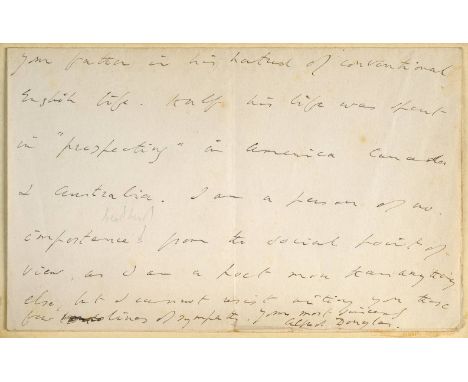 your father in his hatred of conventional
English life. Half his life was spent
in "prospecting" in America Canada
& Australia. I am a person of no
importance! from the social point of
view, as I am a poet more than anything
else, but I cannot resist writing you these
few lines of sympathy. Yours most sincerely
Alfred Douglas.